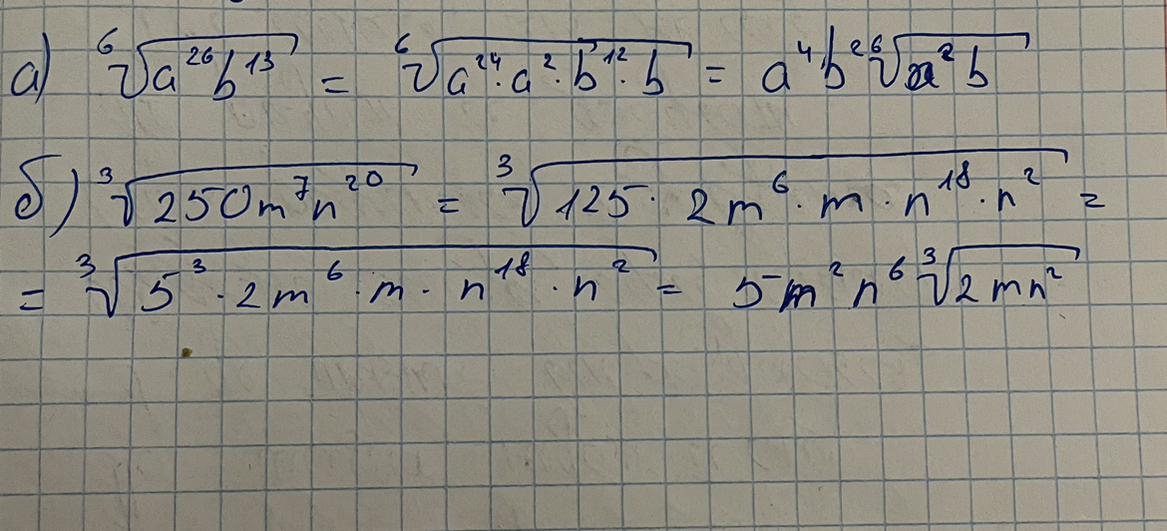 а) ⁶√(a²⁶b¹³) = ⁶√(a²⁴·a²·b¹²·b) = a⁴b² ⁶√(a²b)
б) ³√(250m⁷n²⁰) = ³√(125·2m⁶·m·n¹⁸·n²) =
= ³√(5³·2m⁶·m·n¹⁸·n²) = 5m²n⁶ ³√(2mn²)